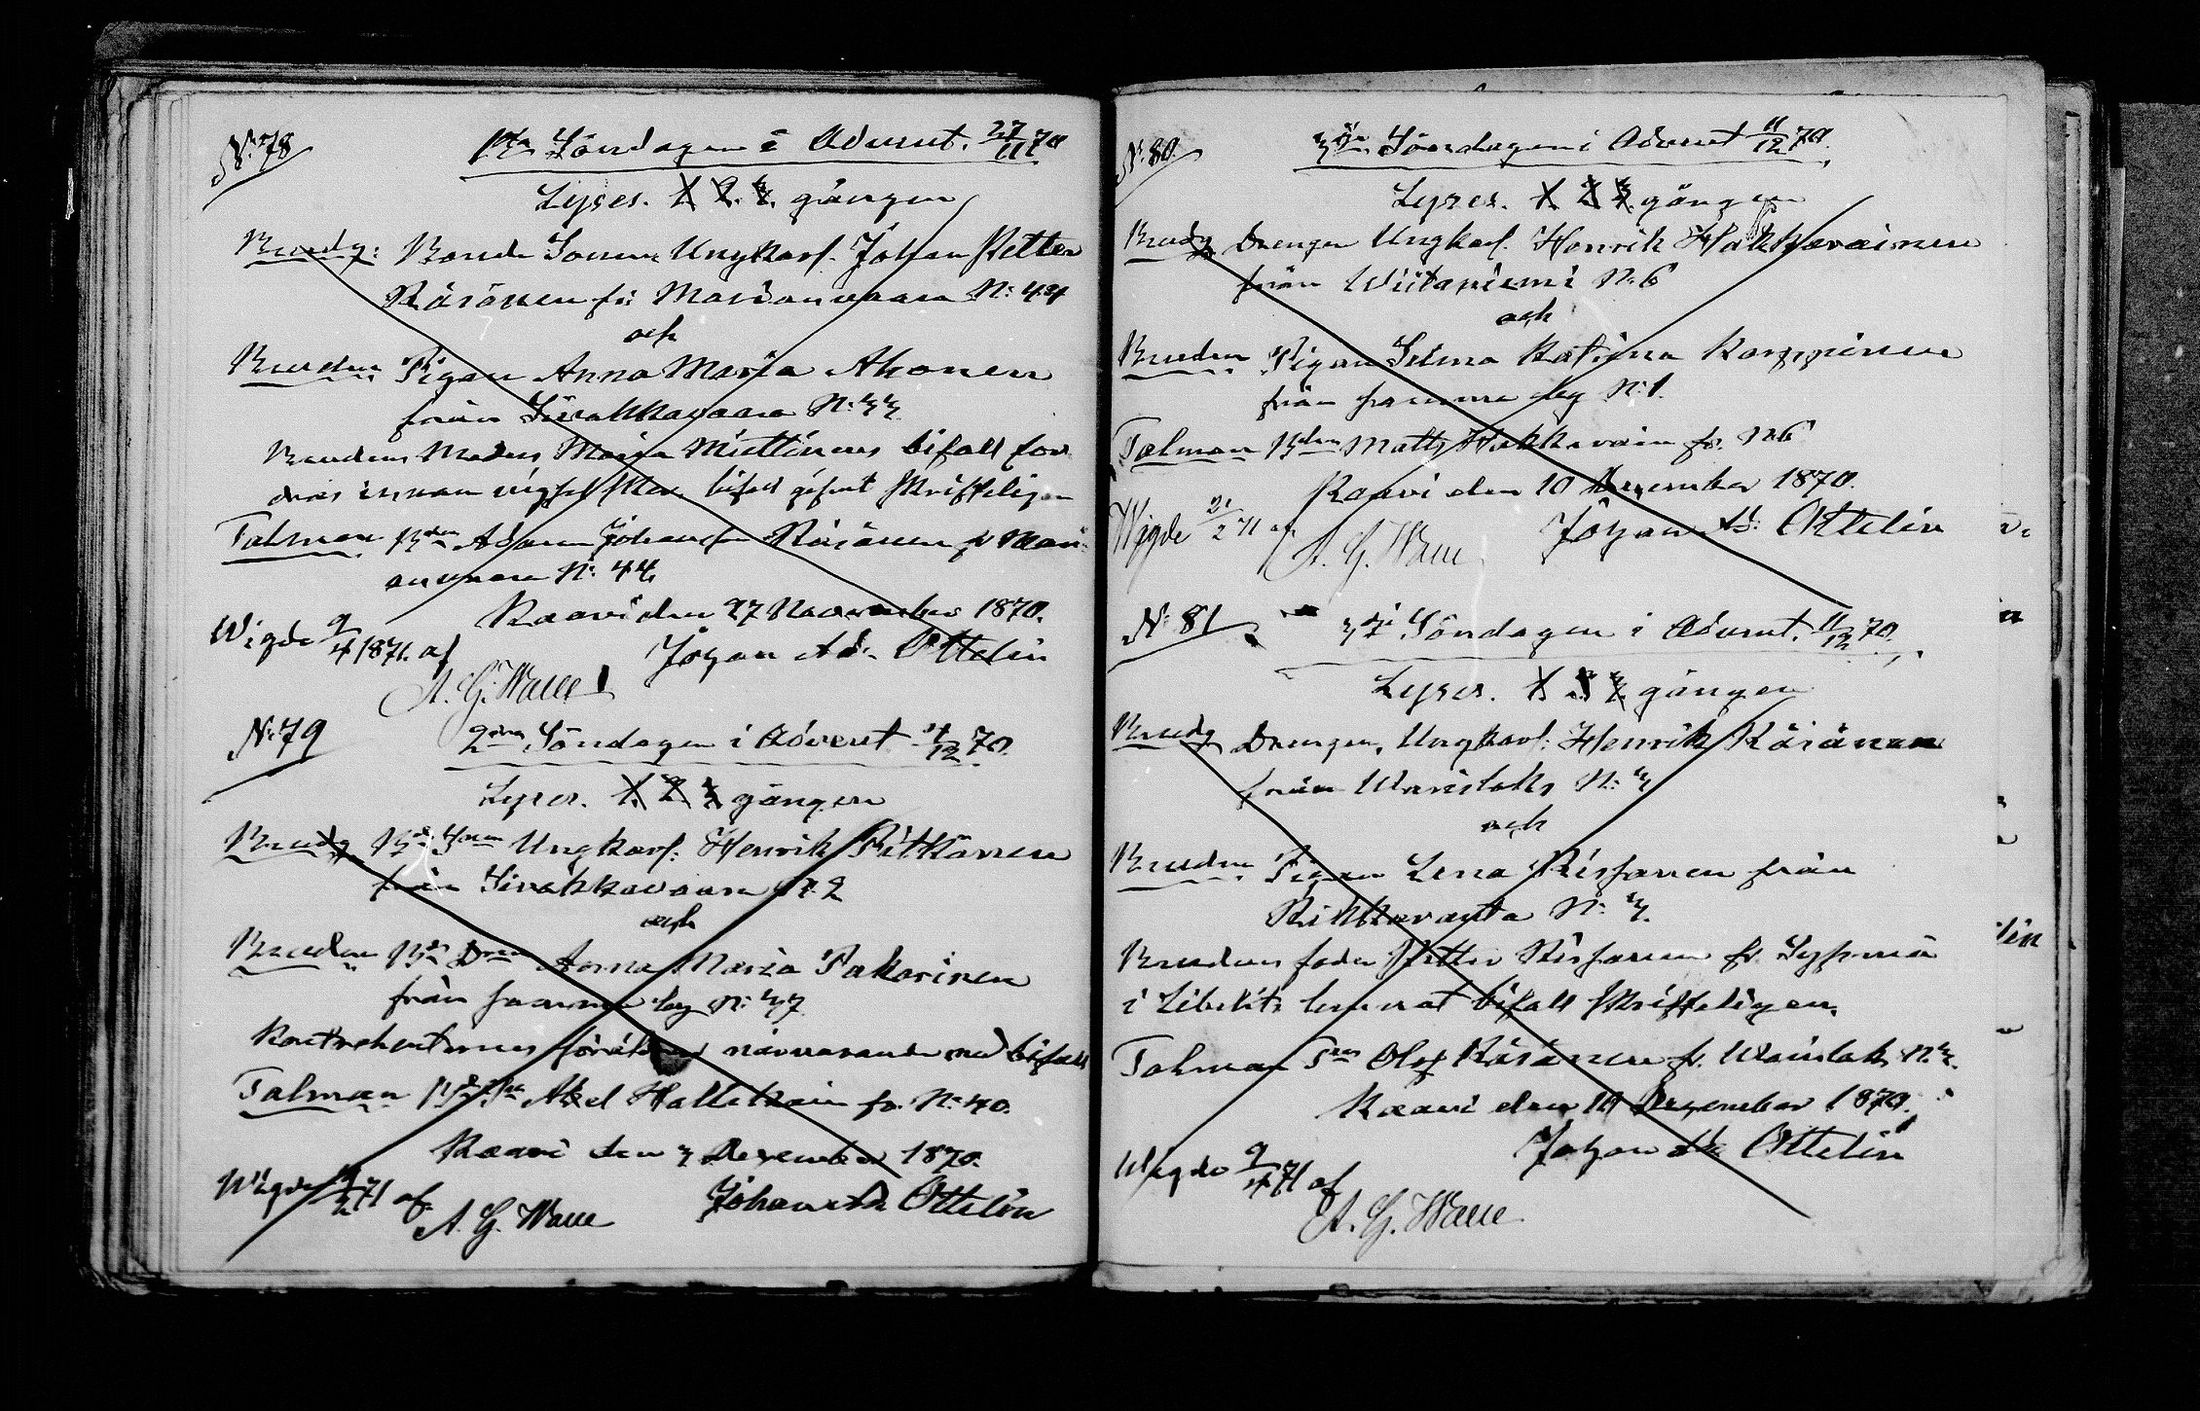 N: 78
1sta Söndagen i Advent. 27/11 70
Lyses. 1. 2. 3. gången
Brudg: Bonde Sonen Ungkarl. Johan Petter
Räsänen fr: Marianvaara N: 44
och
Bruden Pigan Anna Maria Ahonen
från Sivakkavaara N: 33
Brudens Moders Maria Miettinens bifall ford
dras innan vigsel sker bifall gifvit skrifteligen
Talman Bden Adam Johan Räsänen fr Mari-
anvaara N: 44
Kaavi den 27 November 1870.
Wigde 9/4 1871. af Johan Ad. Ottelin
A. G. Walle
N: 79
2dra Söndagen i Advent 4/12 70.
Lyses. 1. 2. 3 gången
Brudg Bde Sonen Ungkarl: Henrik Pitkänen
från Sivakkavaara N: 2
och
Bruden Bde Dren Anna Maria Pakarinen
från samma by N: 37
Kontrahenternes föräldrar närvarande med bifall
Talman Axel Hallikain fr. N: 40.
Kaavi den 3 December 1870.
Wigde 71 af Johan Ad Ottelin
A. G. Walle
N: 80.
3dje Söndagen i Advent 11/12 70.
Lyses. 1. 2 3. gången
Brudg Drengen Ungkarl. Henrik Hakkarainen
från Wiitaniemi N: 6
och
Bruden Pigan Selma Katrina Karppinen
från samma by N: 1.
Talman Bden Matts Hakkarain fr. N: 6
Kaavi den 10 December 1870.
Wigde 21/2 71 af Johan Ad: Ottelin
A. G. Walle
N: 81
3dje Söndagen i Advent. 11/12 70.
Lyses. 1. 2 3. gången
Brudg Drengen, Ungkarl: Henrik Räsänen
från Wainslaks N: 3
och
Bruden Pigan Lena Riskanen från
Rikkaranta N: 3.
Brudens fader Petter Riskanen fr. Sysmä
i Libelits lemnat bifall skrifteligen.
Talman Olof Räsänen fr. Wainslak N: 3.
Kaavi den 10 December 1870.
Wigde 9/4 71 af Johan Ad Ottelin
A. G. Walle